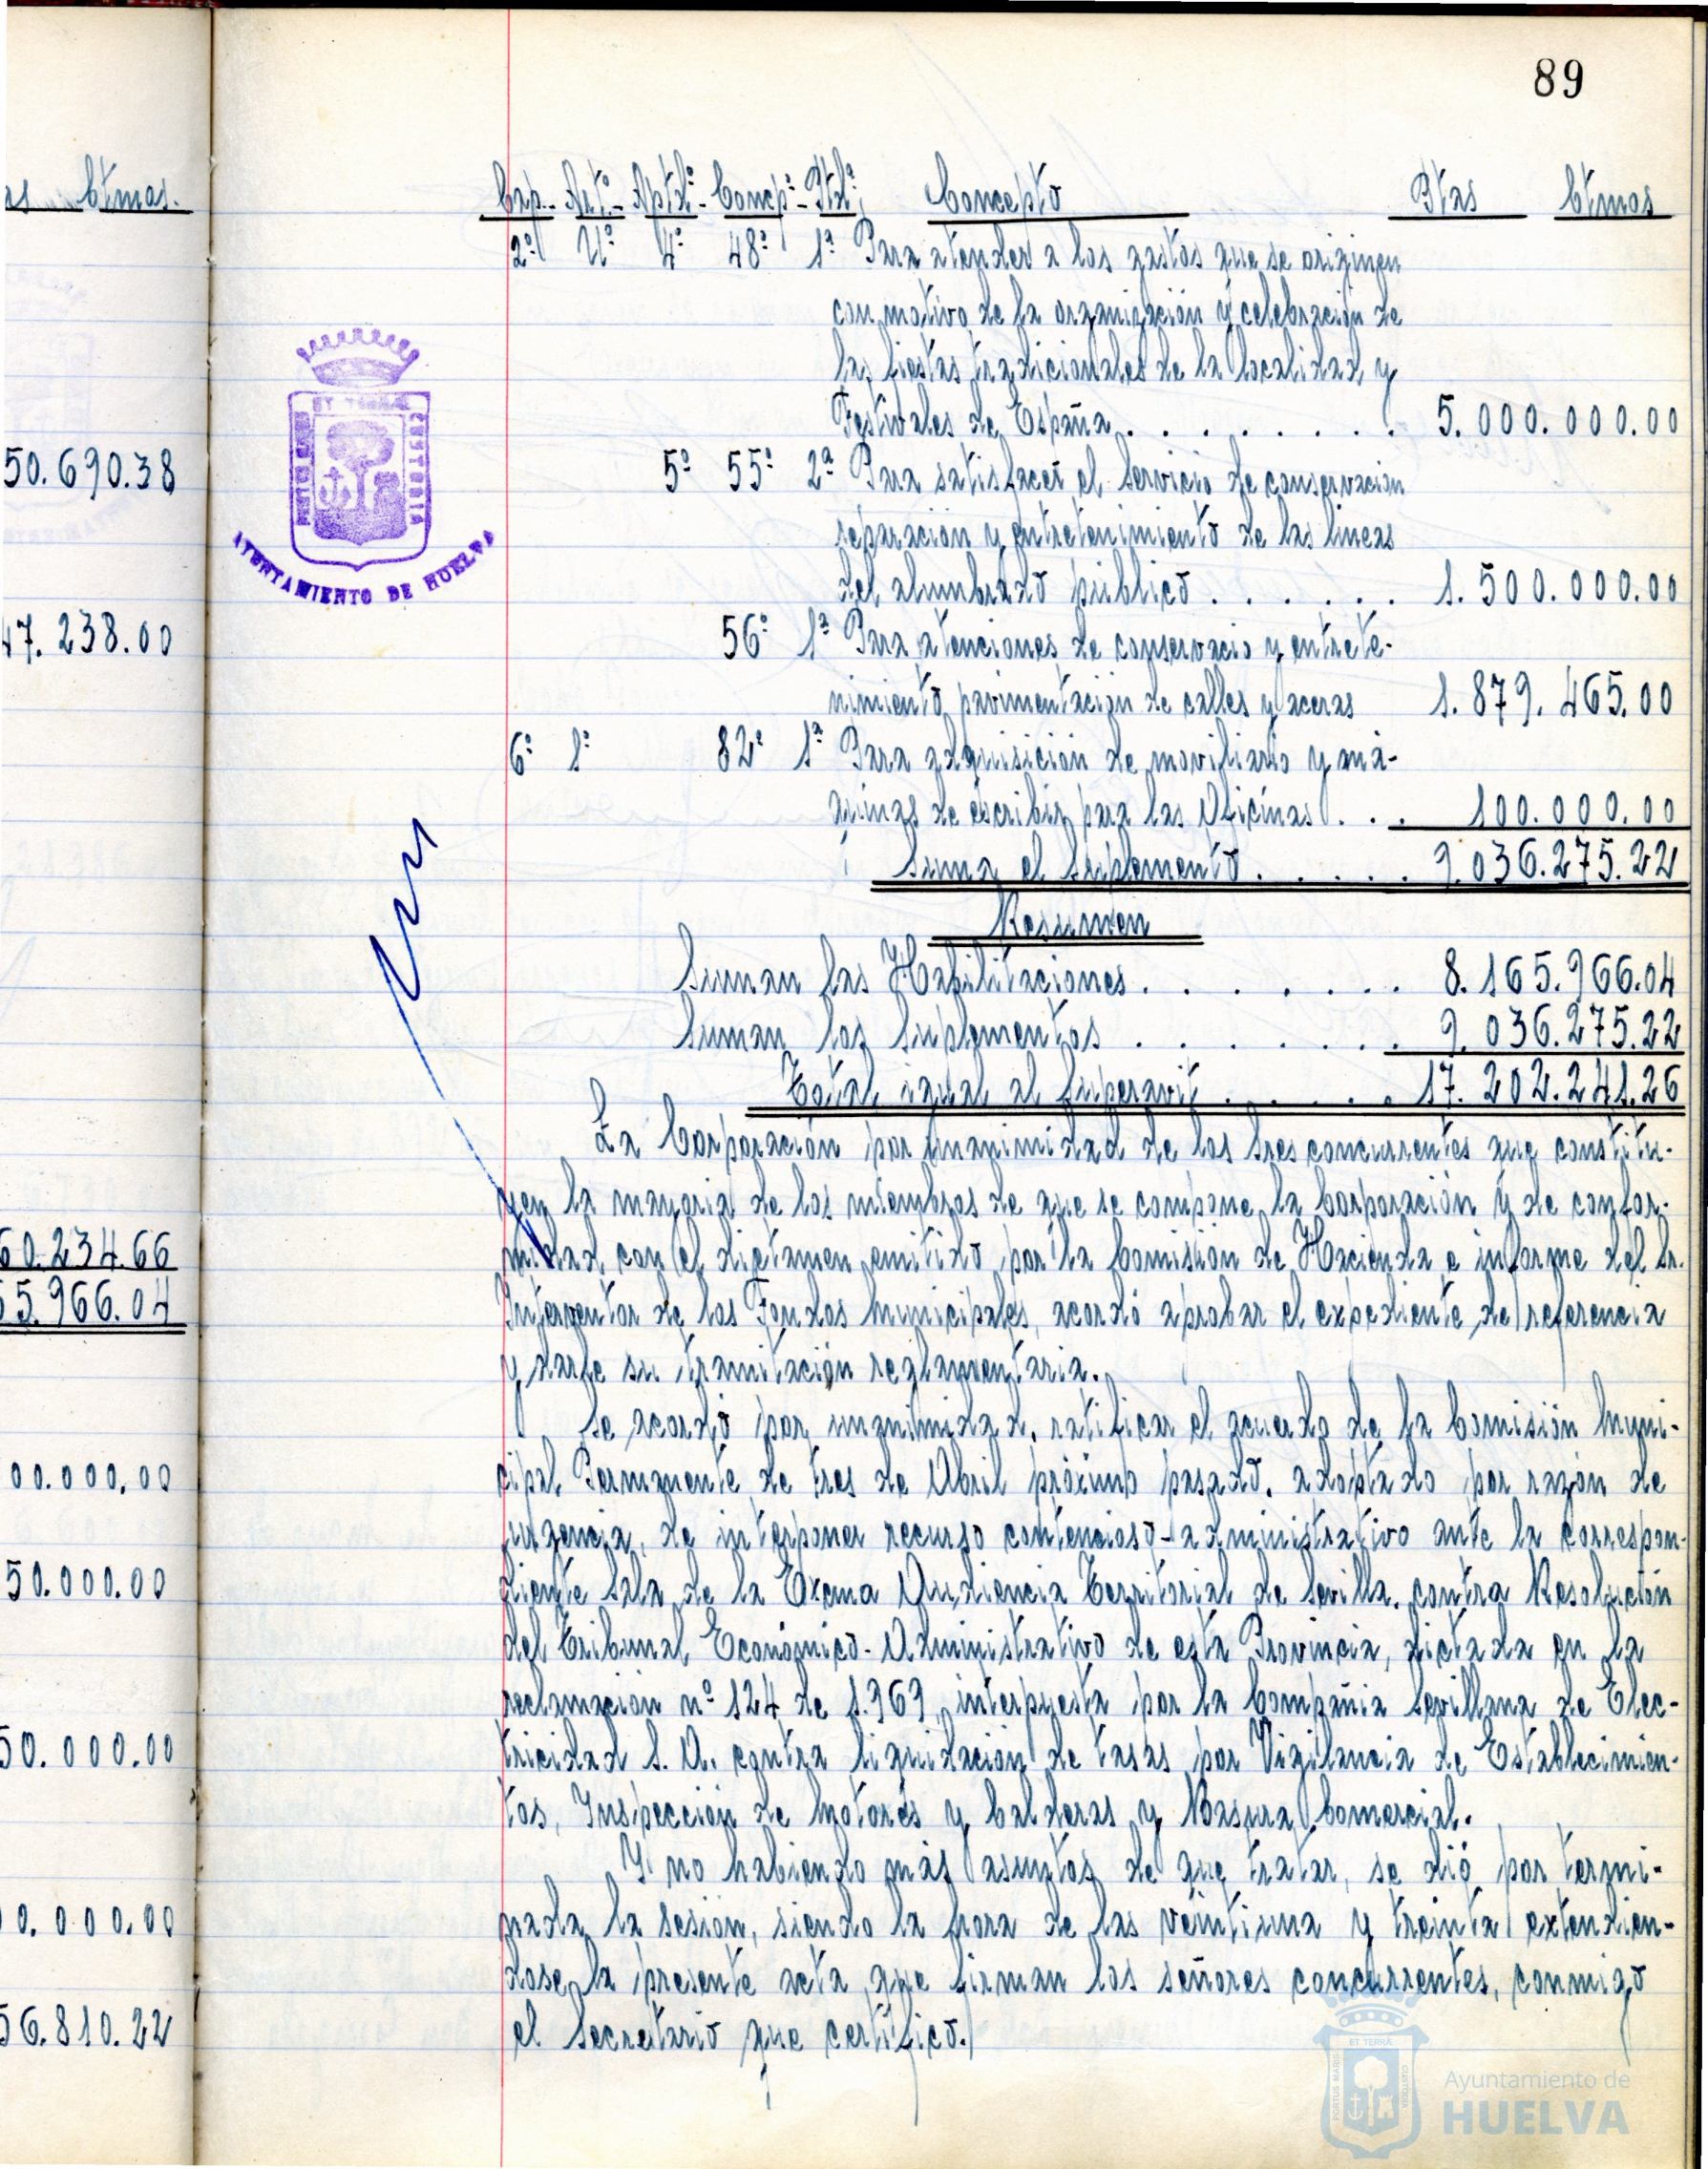 89
as Ctmas.
50.690.38
47.238.00
60.234.66
65.966.04
00.000.00
50.000.00
50.000.00
0.000.00
56.810.22
Cap.- Artº- Aptdº- Concpº- Ptdª; Concepto Ptas Ctmos
2º 4º 48º 1ª Para atender a los gastos que se originen
con motivo de la organización y celebración de
las fiestas tradicionales de la localidad y
Festivales de España. . . . . . . . 5.000.000.00
5º 55º 2ª Para satisfacer el servicio de conservacion
reparacion y entretenimiento de las lineas
del alumbrado publico . . . . . . 1.500.000.00
56º 1ª Para atenciones de conservacio y entrete-
nimiento, pavimentación de calles y aceras 1.879.465.00
6º 1º 82º 1ª Para adquisición de moviliario y má-
quinas de escribir para las Oficinas . . . 100.000.00
Suma el Suplemento . . . . . 9.036.275.22
Resumen
Suman las Habilitaciones . . . . . . . 8.165.966.04
Suman los Suplementos . . . . . . . 9.036.275.22
Total igual al Superavit . . . . . 17.202.241.26
La Corporación por unanimidad de los Sres concurrentes que constitu-
yen la mayoria de los miembros de que se compone la Corporación y de confor-
midad con el dictamen emitido por la Comision de Hacienda e informe del Sr.
Interventor de los Fondos Municipales, acordó aprobar el expediente de referencia
y darle su tramitación reglamentaria.
Se acordó por unanimidad, ratificar el acuerdo de la Comisión Muni-
cipal Permanente de tres de Abril próximo pasado, adoptado por razón de
urgencia, de interponer recurso contencioso-administrativo ante la correspon-
diente Sala de la Excma Audiencia Territorial de Sevilla, contra Resolución
del Tribunal Económico-Administrativo de esta Provincia, dictada en la
reclamación nº 124 de 1.969, interpuesta por la Compañia Sevillana de Elec-
tricidad S.A. contra liquidación de tasas por Vigilancia de Establecimien-
tos, Inspección de Motores y Calderas y Basura Comercial.
Y no habiendo más asuntos de que tratar, se dió por termi-
nada la sesión, siendo la hora de las veintiuna y treinta extendien-
dose la presente acta, que firman los señores concurrentes, conmigo
el Secretario que certifico.
PORTUS MARIS
ET TERRAE
CUSTODIA
AYUNTAMIENTO DE HUELVA
ET TERRÆ
PORTUS MARIS
CUSTODIA
Ayuntamiento de
HUELVA